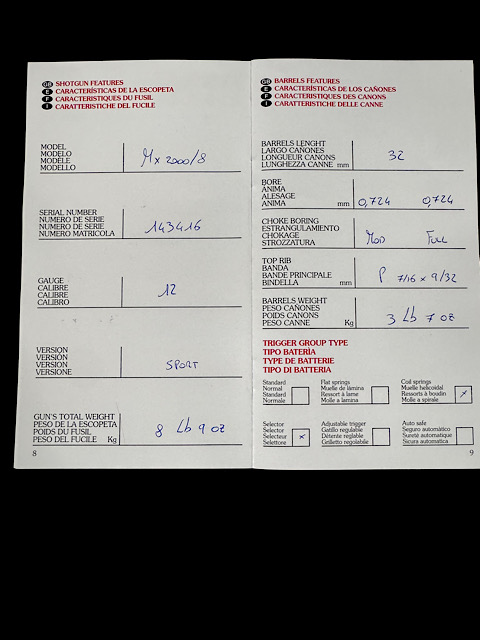 GB SHOTGUN FEATURES
E CARACTERÍSTICAS DE LA ESCOPETA
F CARACTERISTIQUES DU FUSIL
I CARATTERISTICHE DEL FUCILE
MODEL
MODELO
MODÈLE
MODELLO
Mx 2000/8
SERIAL NUMBER
NUMERO DE SERIE
NUMERO DE SERIE
NUMERO MATRICOLA
143416
GAUGE
CALIBRE
CALIBRE
CALIBRO
12
VERSION
VERSIÓN
VERSION
VERSIONE
SPORT
GUN'S TOTAL WEIGHT
PESO DE LA ESCOPETA
POIDS DU FUSIL
PESO DEL FUCILE Kg
8 Lb 9 oz
8
GB BARRELS FEATURES
E CARACTERÍSTICAS DE LOS CAÑONES
F CARACTERISTIQUES DES CANONS
I CARATTERISTICHE DELLE CANNE
BARRELS LENGHT
LARGO CAÑONES
LONGUEUR CANONS
LUNGHEZZA CANNE mm
32
BORE
ANIMA
ALESAGE
ANIMA mm
0,724 0,724
CHOKE BORING
ESTRANGULAMIENTO
CHOKAGE
STROZZATURA
MOD FULL
TOP RIB
BANDA
BANDE PRINCIPALE
BINDELLA mm
P 7/16 x 9/32
BARRELS WEIGHT
PESO CAÑONES
POIDS CANONS
PESO CANNE Kg
3 Lb 7 oz
TRIGGER GROUP TYPE
TIPO BATERÍA
TYPE DE BATTERIE
TIPO DI BATTERIA
Standard
Normal
Standard
Normale
Flat springs
Muelle de lámina
Ressort à lame
Molle a lamina
Coil springs
Muelle helicoidal
Ressorts à boudin
Molle a spirale
x
Selector
Selector
Selecteur
Selettore
x
Adjustable trigger
Gatillo regulable
Détente reglable
Grilletto regolabile
Auto safe
Seguro automático
Sureté automatique
Sicura automatica
9